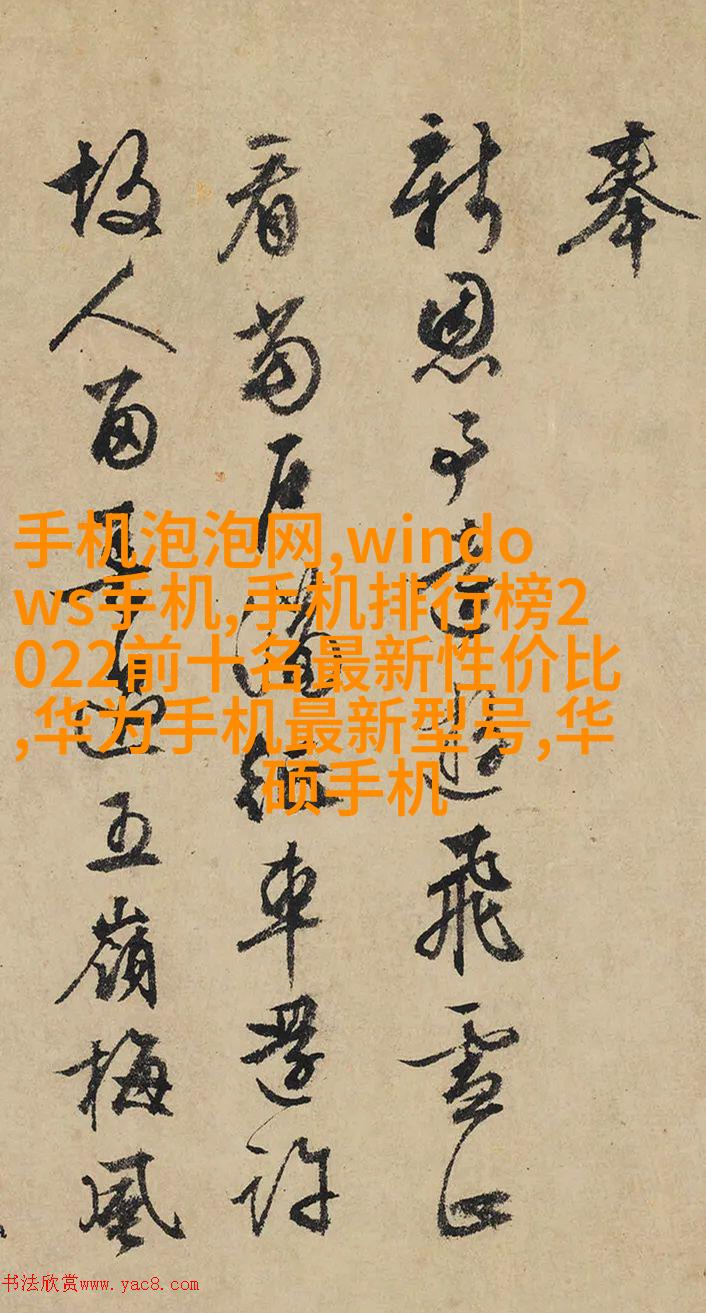 奉
新恩予飛雪正
看石車還許
故人留五嶺梅風
手机泡泡网,windo
ws手机,手机排行榜2
022前十名最新性价比
,华为手机最新型号,华
硕手机
书法欣赏www.yac8.com